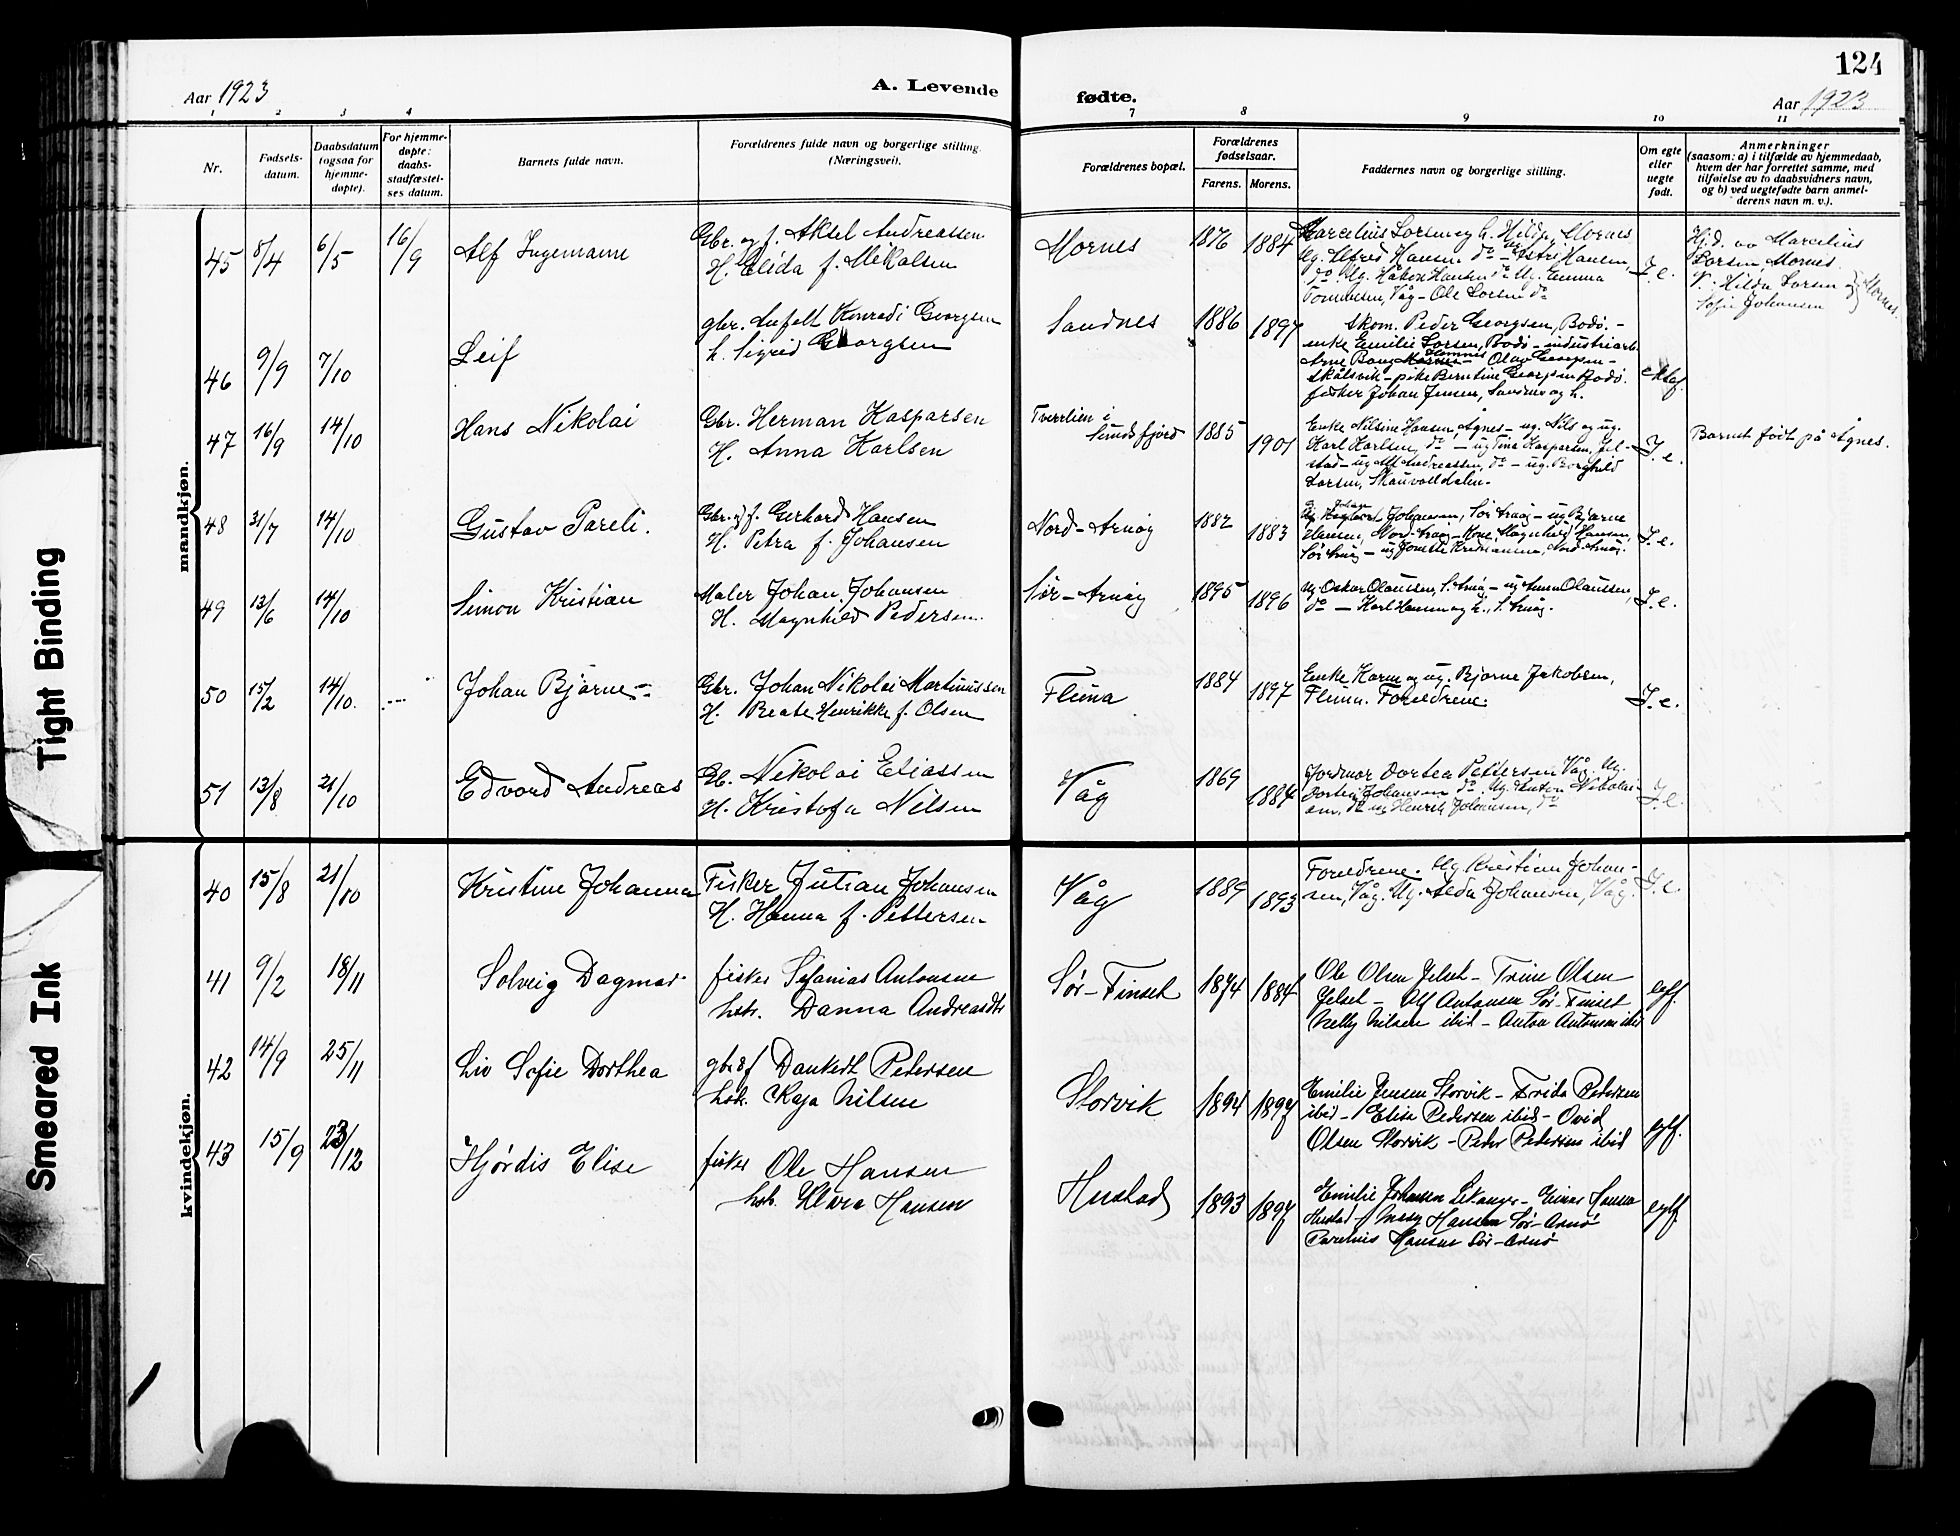 124
Aar 1923
A. Levende
fødte.
Aar 1923
1 2 3 4 7 8 9 10 11
Nr.
Fødsels-
datum.
Daabsdatum
(ogsaa for
hjemme-
døpte).
For hjemme-
døpte:
daabs-
stadfæstel-
ses datum.
Barnets fulde navn.
Forældrenes fulde navn og borgerlige stilling.
(Næringsvei).
Forældrenes bopæl.
Forældrenes
fødselsaar.
Farens. Morens.
Faddernes navn og borgerlige stilling.
Om egte
eller
uegte
født.
Anmerkninger
(saasom: a) i tilfælde av hjemmedaab,
hvem der har forrettet samme, med
tilføielse av to daabsvidners navn,
og b) ved uegtefødte barn anmel-
derens navn m. v.).
mandkjøn.
45 8/4 6/5 16/9 Alf Ingemann
Gbr. og f. Aksel Andreassen
H. Elida f. Mikalsen
Mornes 1876 1884
Marcelius Larsen og h. Hilda, Mornes
Ug. Alfred Hansen do - Ug. Astri Hansen,
do. Ug. Håkon Hansen do Ug. Emma
Våg - Ole Larsen do
I. e.
Hj.d. av Marcelius
Larsen, Mornes.
V.: Hilda Larsen og
Sofie Johansen } Mornes.
46 9/9 7/10 Leif
gbr. Konradi Georgsen
h. Sigrid Georgsen
Sandnes 1886 1897
Skom. Peder Georgsen, Bodø. -
enke Emilie Larsen, Bodø - industriarb.
Arne Olav Georgsen -
Skålsvik - pike Berntine Georgsen Bodø.
fisker Johan Jensen, Sandnes og h.
ektef.
47 16/9 14/10 Hans Nikolai
Gbr. Herman Kasparsen
H. Anna Karlsen
Tverrlien i
1885 1901
Enke Nilsine Hansen, Ågnes - ug. Nils og ug.
Karl Karlsen, do - ug Tina Kaspersen, Jel-
stad - ug Alf Andreassen, do - ug. Borghild
Larsen, Skauvolldalen.
I. e.
Barnet født på Ågnes.
48 31/7 14/10 Gustav Pareli.
Gbr. og f. Gerhard Hansen
H. Petra f. Johansen
Nord-Arnøy 1882 1883
Johan
Johansen, Sør Arnøy - ug Bjarne
Hansen, Nord-Arnøy - Kone Magnhild Hansen,
Sør Arnøy - ug Jonette Kristiansen, Nord-Arnøy.
I. e.
49 13/6 14/10 Simon Kristian
Maler Johan Johansen
H. Magnhild Pedersen.
Sør-Arnøy 1895 1896
Ug. Oskar Olaussen, S. Arnøy - ug Anna Olaussen,
do - Karl Hansen og h., S. Arnøy.
I. e.
50 15/2 14/10. Johan Bjarne
Gbr. Johan Nikolai Martinussen
H. Beate Henrikke f. Olsen
Fleina 1884 1897
Enke Karen og ug. Bjarne Jakobsen,
Fleina. Foreldrene.
I. e.
51 13/8 21/10 Edvard Andreas
Gb. Nikolai Eliassen
H. Kristofa Nilsen
Våg 1869 1884
Jordmor Dortea Pettersen Våg. Ug.
Johansen do. Ug. Anton Nikolai-
sen, do ug Henrik Johansen, do
I. e.
kvindekjøn.
40 15/8 21/10 Kristine Johanna
Fisker Julian Johansen
H. Hanna f. Pettersen
Våg 1889 1893
Foreldrene. Ug Kristian Johan-
sen, Våg. Ug. Alda Johansen, Våg.
I. e.
41 9/2 18/11 Solveig Dagmar
fisker Sefanias Antonsen
hstr. Danna Andreasdtr
Sør-Finset 1874 1884
Ole Olsen Jelset - Trine Olsen
Jelset - Alf Antonsen Sør-Finset
Nelly Nilsen ibid - Anton Antonsen ibid
egtf.
42 14/9 25/11 Liv Sofie Dorthea
gbr & f Dankert Petersen
hst. Kaja Nilsen
Storvik 1894 1897
Emilie Jensen Storvik - Frida Petersen
ibid - Elisa Pedersen ibid - Ovid
Olsen Storvik - Peder Petersen ibid
egtf.
43 15/9 23/12 Hjørdis Elise
fisker Ole Hansen
hst. Klara Hansen
Hustad 1893 1897
Emilie Johansen Lekanger - Einar Hansen
Hustad - Hansen Sør-Arnø
Parelius Hansen Sør-Arnø
egtf.
Tight Binding
Smeared Ink